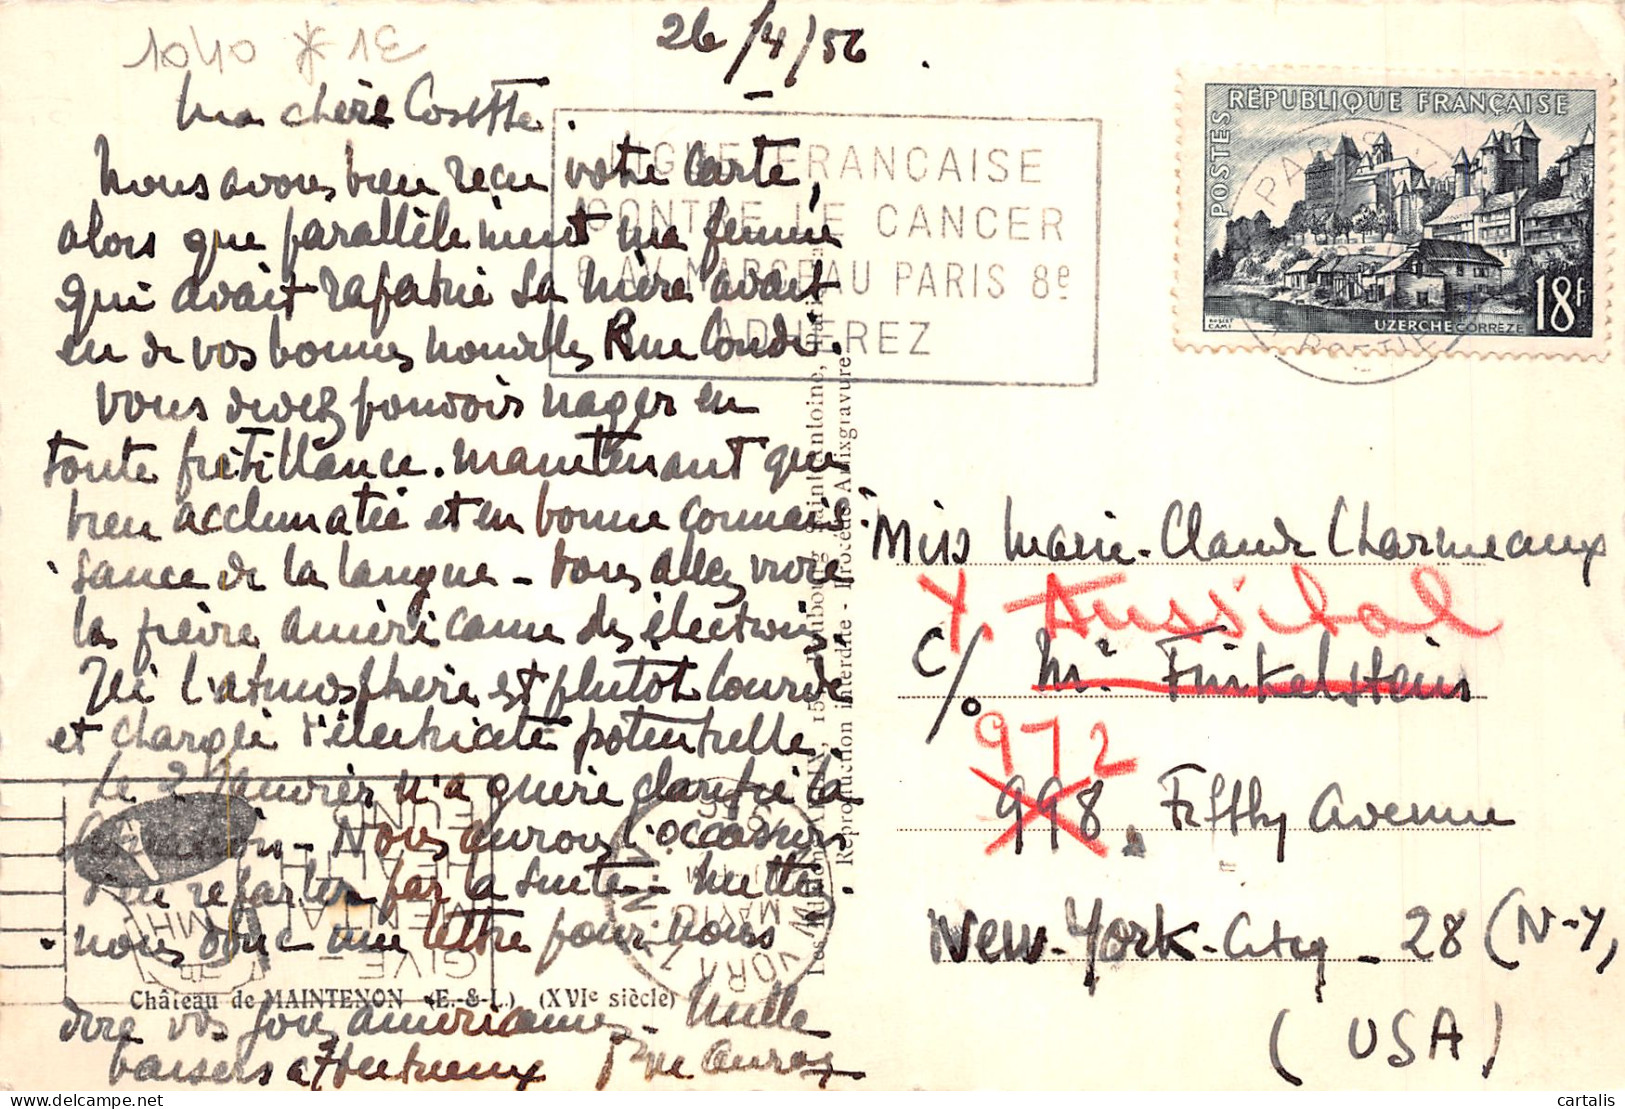 1040 * 1E
26/4/56
Ma chère Cosette.
Nous avons bien reçu votre carte,
alors que parallèlement ma femme
qui avait rapatrié sa mère avait
eu de vos bonnes nouvelles Rue Condé.
Vous devez pouvoir nager en
toute frétillance. maintenant que
bien acclimatée et en bonne connais-
sance de la langue - Vous allez vivre
la fièvre américaine des élections
Ici l'atmosphère est plutôt lourde
et chargée d'électricité potentielle.
Le 2 Janvier n'a guère clarifié la
Nous aurons l'occasion
d'en reparler par la suite - Mettez-
nous donc une lettre pour nous
dire vos joies américaines - Mille
baisers affectueux
LIGUE FRANCAISE
CONTRE LE CANCER
6 AV. MARCEAU PARIS 8e
ADHEREZ
RÉPUBLIQUE FRANÇAISE
POSTES
UZERCHE CORRÈZE
18F
PARIS
Miss Marie-Claude Charmeaux
c/o Mr Finkelstein
972
998, Fifthy Avenue
New-York-City - 28 (N-Y)
(USA)
GIVE
MENTAL
HEALTH
FUND
Château de MAINTENON (E.-&-L.) (XVIe siècle)
Reproduction interdite - Procédé Amixgravure
cartalis